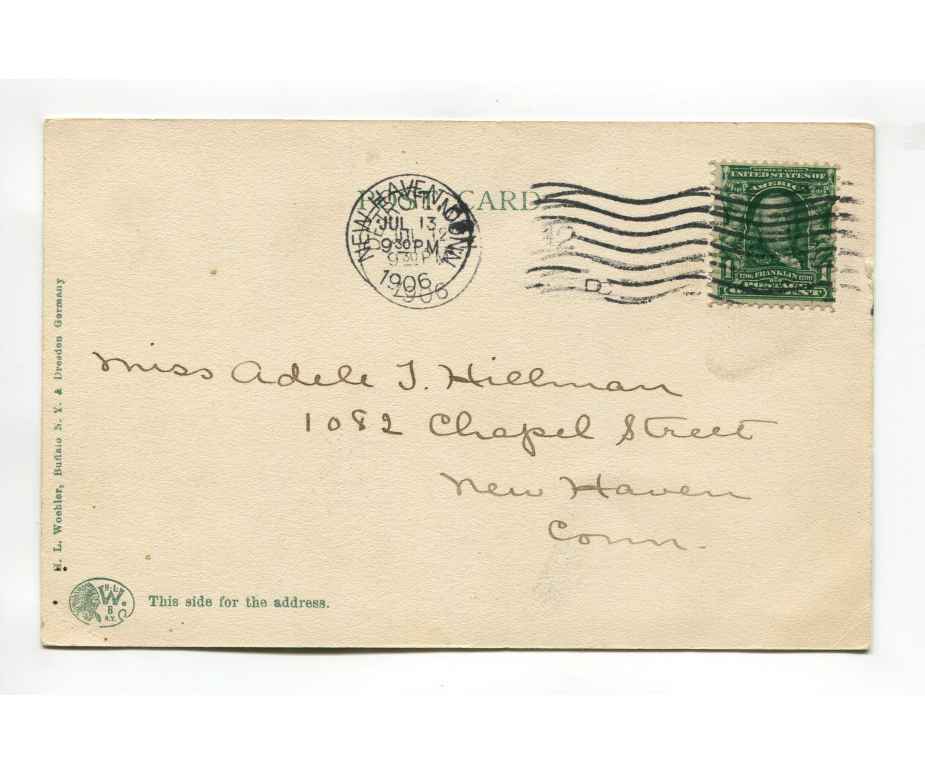 POST CARD
NEW HAVEN CONN.
JUL 13
9 30 PM
1906
JUL 12
9 30 PM
1906
D
UNITED STATES OF
AMERICA
FRANKLIN
POSTAGE
Miss Adele T. Hillman
1082 Chapel Street
New Haven
Conn.
H. L. Woehler, Buffalo N. Y. & Dresden Germany
H.L.
W.
B
N.Y.
This side for the address.